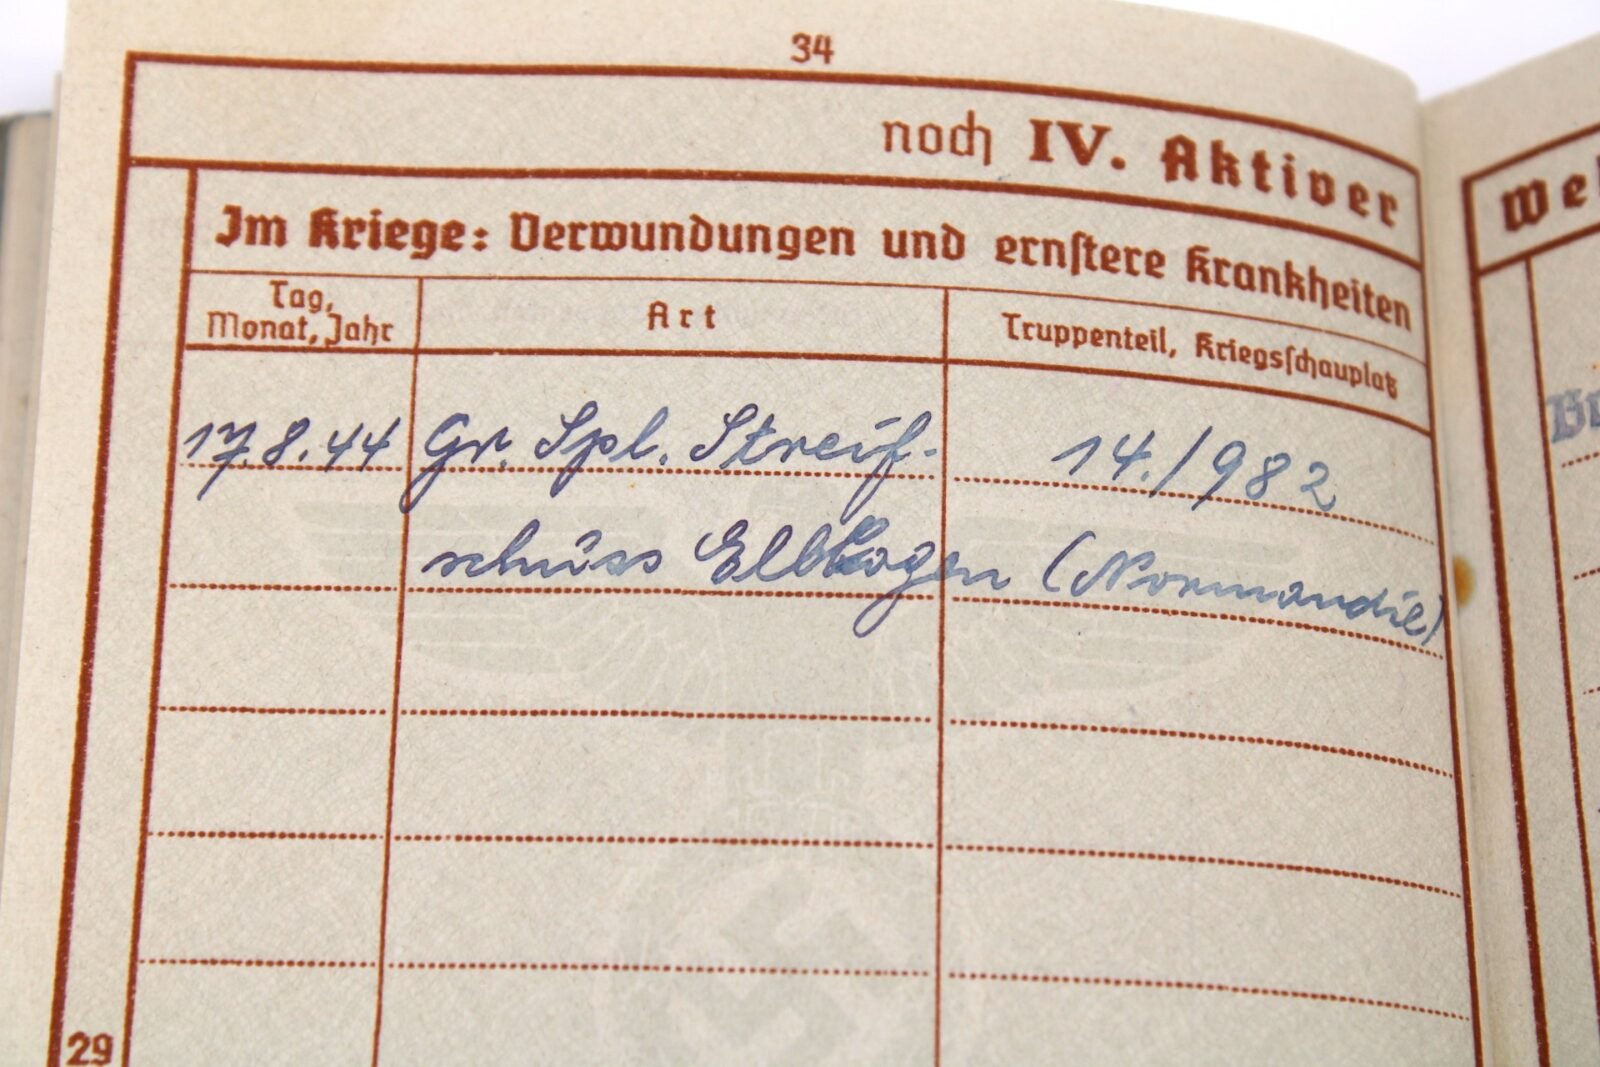 34
noch IV. Aktiver
Im Kriege: Verwundungen und ernstere Krankheiten
Tag,
Monat, Jahr
Art
Truppenteil, Kriegsschauplatz
17.8.44 Gr. Spl. Streif- 14./982
schuss Ellbogen (Normandie)
29
We